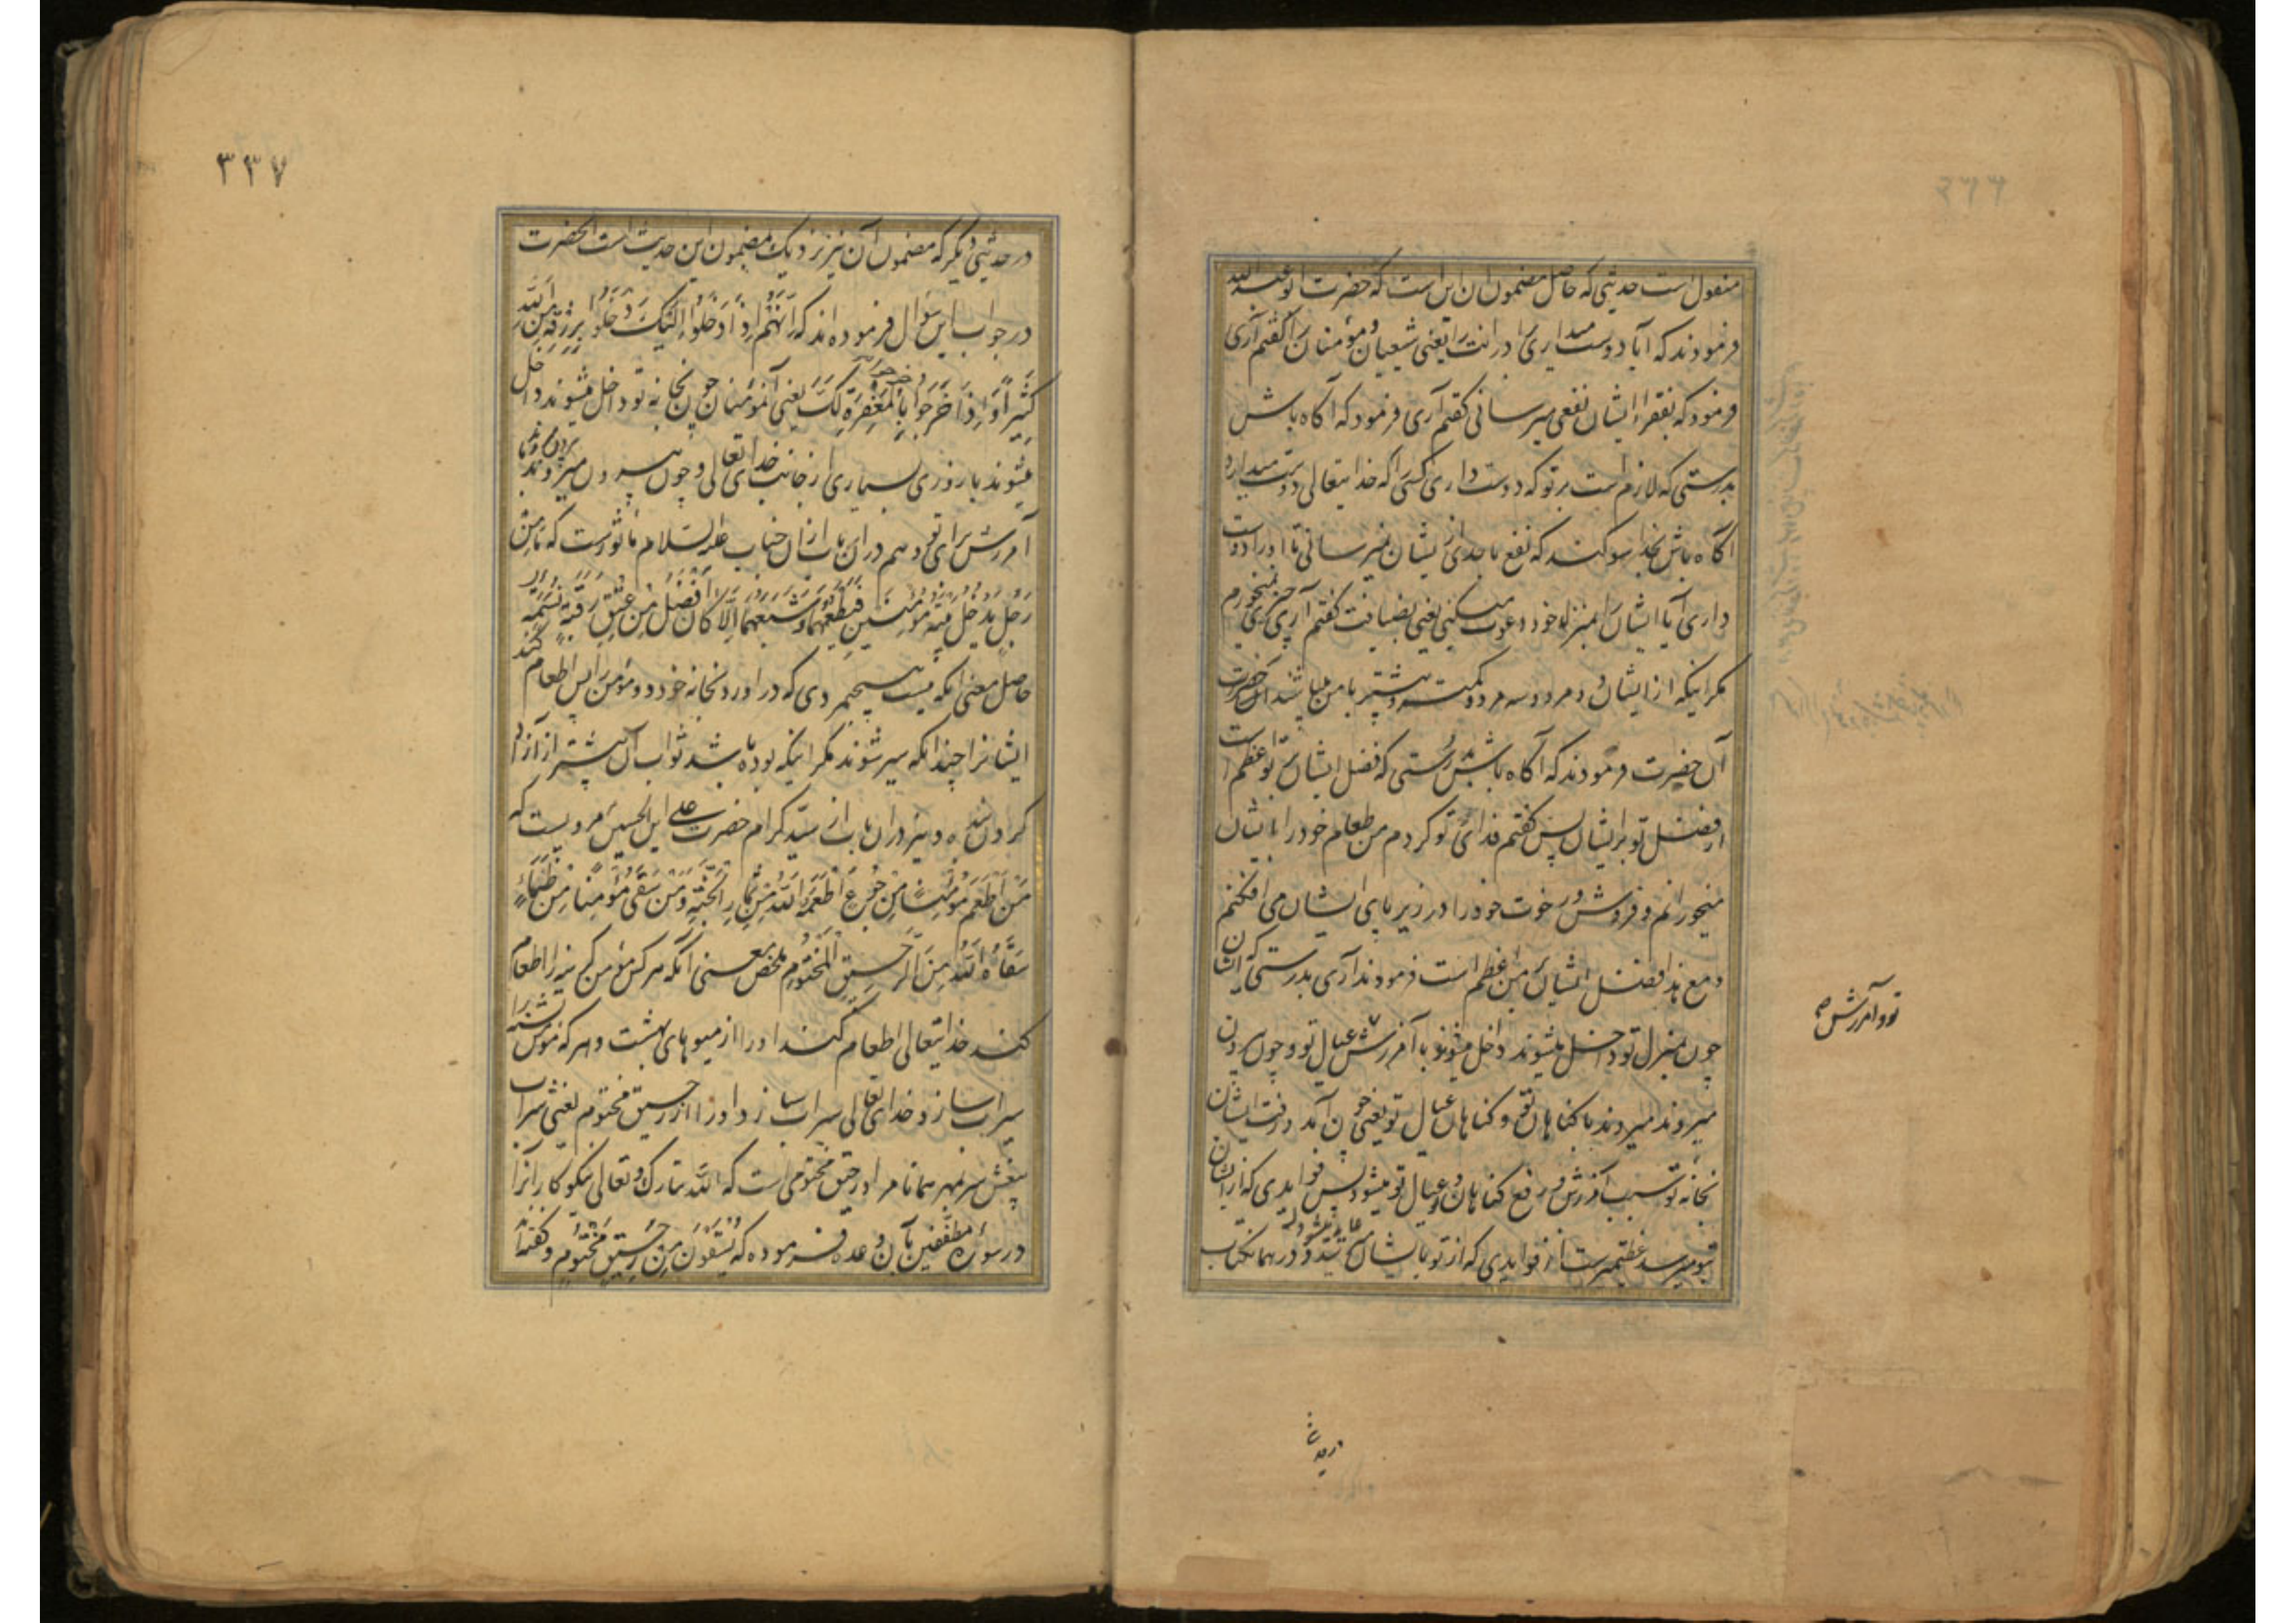 منقول است حدیثی که حاصل مضمون آن این است که حضرت ابو عبد الله
فرمودند که آیا دوست میداری برادرانت را یعنی شیعیان و مؤمنان را گفتم آری
فرمود که بفقراء ایشان نفعی میرسانی گفتم آری فرمود که آگاه باش
بدرستی که لازم است بر تو که دوست داری کسی را که خدایتعالی دوست میدارد
آگاه باش بخدا سوگند که نفع باحدی از ایشان نمیرسانی تا او را دوست
داری آیا ایشان را بمنزل خود دعوت میکنی یعنی بضیافت گفتم آری چیزی نمیخورم
مگر اینکه از ایشان دو مرد و سه مرد و کمتر و بیشتر با من میباشند آن حضرت
آن حضرت فرمودند که آگاه باش بدرستی که فضل ایشان بر تو اعظم است
از فضل تو بر ایشان پس گفتم فدای تو کردم من طعام خود را بایشان
میخورانم و فروش و رخوت خود را در زیر پای ایشان می افکنم
و مع هذا فضل ایشان بر من اعظم است فرمودند آری بدرستی که ایشان
چون بمنزل تو داخل میشوند داخل میشوند با آمرزش عیال تو و چون بیرون
میروند میروند با گناهان تو و گناهان عیال تو یعنی چون آمد و رفت ایشان
بخانه تو سبب آمرزش و رفع گناهان تو و عیال تو میشود پس فوایدی که از ایشان
بتو میرسد عظیمتر است از فوایدی که از تو بایشان عاید میشود و در همان کتاب
تو و آمرزش صح
در حدیثی
۳۳۷
در حدیثی دیگر که مضمون آن نیز نزدیک بمضمون این حدیث است آنحضرت
در جواب این سؤال فرموده اند که اِنَّهُمْ اِذَا دَخَلُوا اِلَیْكَ دَخَلُوا بِرِزْقٍ مِنَ اللهِ
كَثِيرٍ وَاِذَا خَرَجُوا خَرَجُوا بِالْمَغْفِرَةِ لَكَ یعنی آنمؤمنان چون بخانه تو داخل میشوند داخل
میشوند با روزی بسیاری از جانب خدای تعالی و چون بیرون میروند بیرون میروند با
آمرزش برای تو و هم در این باب از آن جناب علیه السلام مأثور است که مَا مِنْ
رَجُلٍ يُدْخِلُ بَيْتَهُ مُؤْمِنَيْنِ فَيُطْعِمُهُمَا وَ شِبَعَهُمَا اِلَّا كَانَ اَفْضَلَ مِنْ عِتْقِ رَقَبَةٍ نَسَمَةٍ
حاصل معنی آنکه نیست هیچ مردی که در آورد بخانه خود دو مؤمن را پس اطعام کند
ایشانرا چندانکه سیر شوند مگر اینکه بوده باشد ثواب آن بیشتر از آزاد
کردن بنده و نیز در آن باب از سید کرام حضرت علی ابن الحسین مرویست که
مَنْ اَطْعَمَ مُؤْمِنًا مِنْ جُوعٍ اَطْعَمَهُ اللهُ مِنْ ثِمَارِ الْجَنَّةِ وَمَنْ سَقَى مُؤْمِنًا مِنْ ظَمَاءٍ
سَقَاهُ اللهُ مِنَ الرَّحِيقِ الْمَخْتُومِ ملخص معنی آنکه هر کس مؤمن گرسنه را اطعام
کند خدایتعالی اطعام کند او را از میوهای بهشت و هر که مؤمن تشنه را
سیراب سازد خدای تعالی سیراب سازد او را از رحیق مختوم یعنی شراب
بیغش سر بمهر همانا مراد رحیق مختومی است که الله تبارک و تعالی نیکوکارانرا
در سورۀ مطففین بآن وعده فرموده که يُسْقَوْنَ مِنْ رَحِيقٍ مَخْتُومٍ و گفته اند